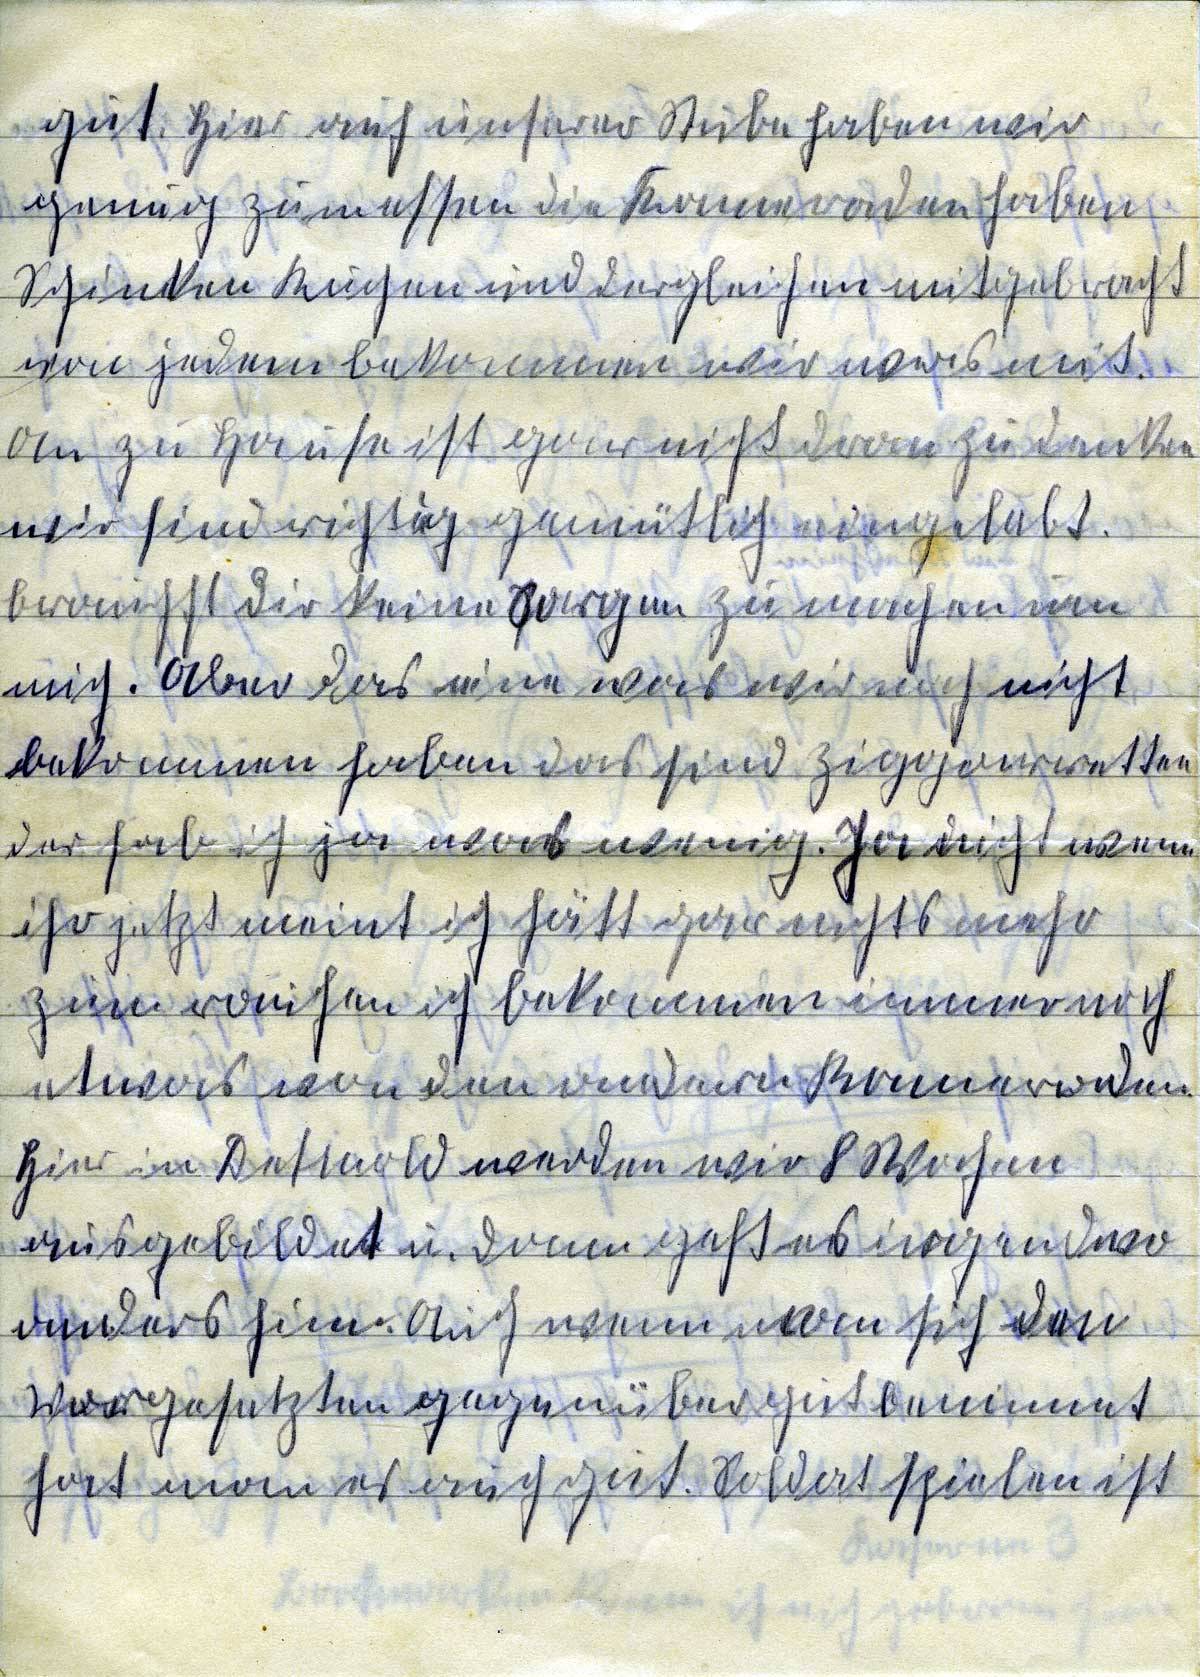 gut. Hier auf unserer Stube haben wir
genug zum essen die Kammeraden haben
Schinken Kuchen und dergleichen mitgebracht
von jedem bekommen wir was mit.
An zu Hause ist gar nicht dran zu denken
wir sind richtig gemütlich eingelebt.
brauchst dir keine sorgen zu machen um
mich. Aber das eine was wir noch nicht
bekommen haben das sind Ziggarretten
der hab ich ja was wenig. Ja nicht wenn
ihr jetzt meint ich hätt gar nichts mehr
zum rauchen ich bekommen immer noch
etwas von den andern Kammeraden.
Hier in Detmold werden wir 8 Wochen
ausgebildet u. dann geht es irgendwo
anders hin. Auch wenn man sich den
Vorgesetzten gegenüber gut benimmet
hat man es auch gut. Soldat spielen ist